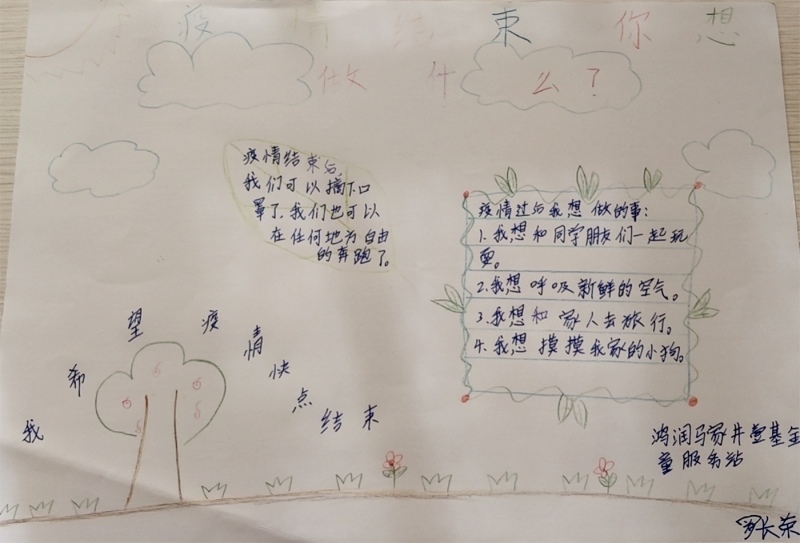 疫情结束你想
做什么？
疫情结束后
我们可以摘下口
罩了.我们也可以
在任何地方自由
的奔跑了。
疫情过后我想 做的事：
1.我想和同学朋友们一起玩
耍。
2.我想呼吸新鲜的空气。
3.我想和家人去旅行。
4.我想摸摸我家的小狗。
我希望疫情快点结束
鸿润马家井壹基金
童服务站
罗长荣